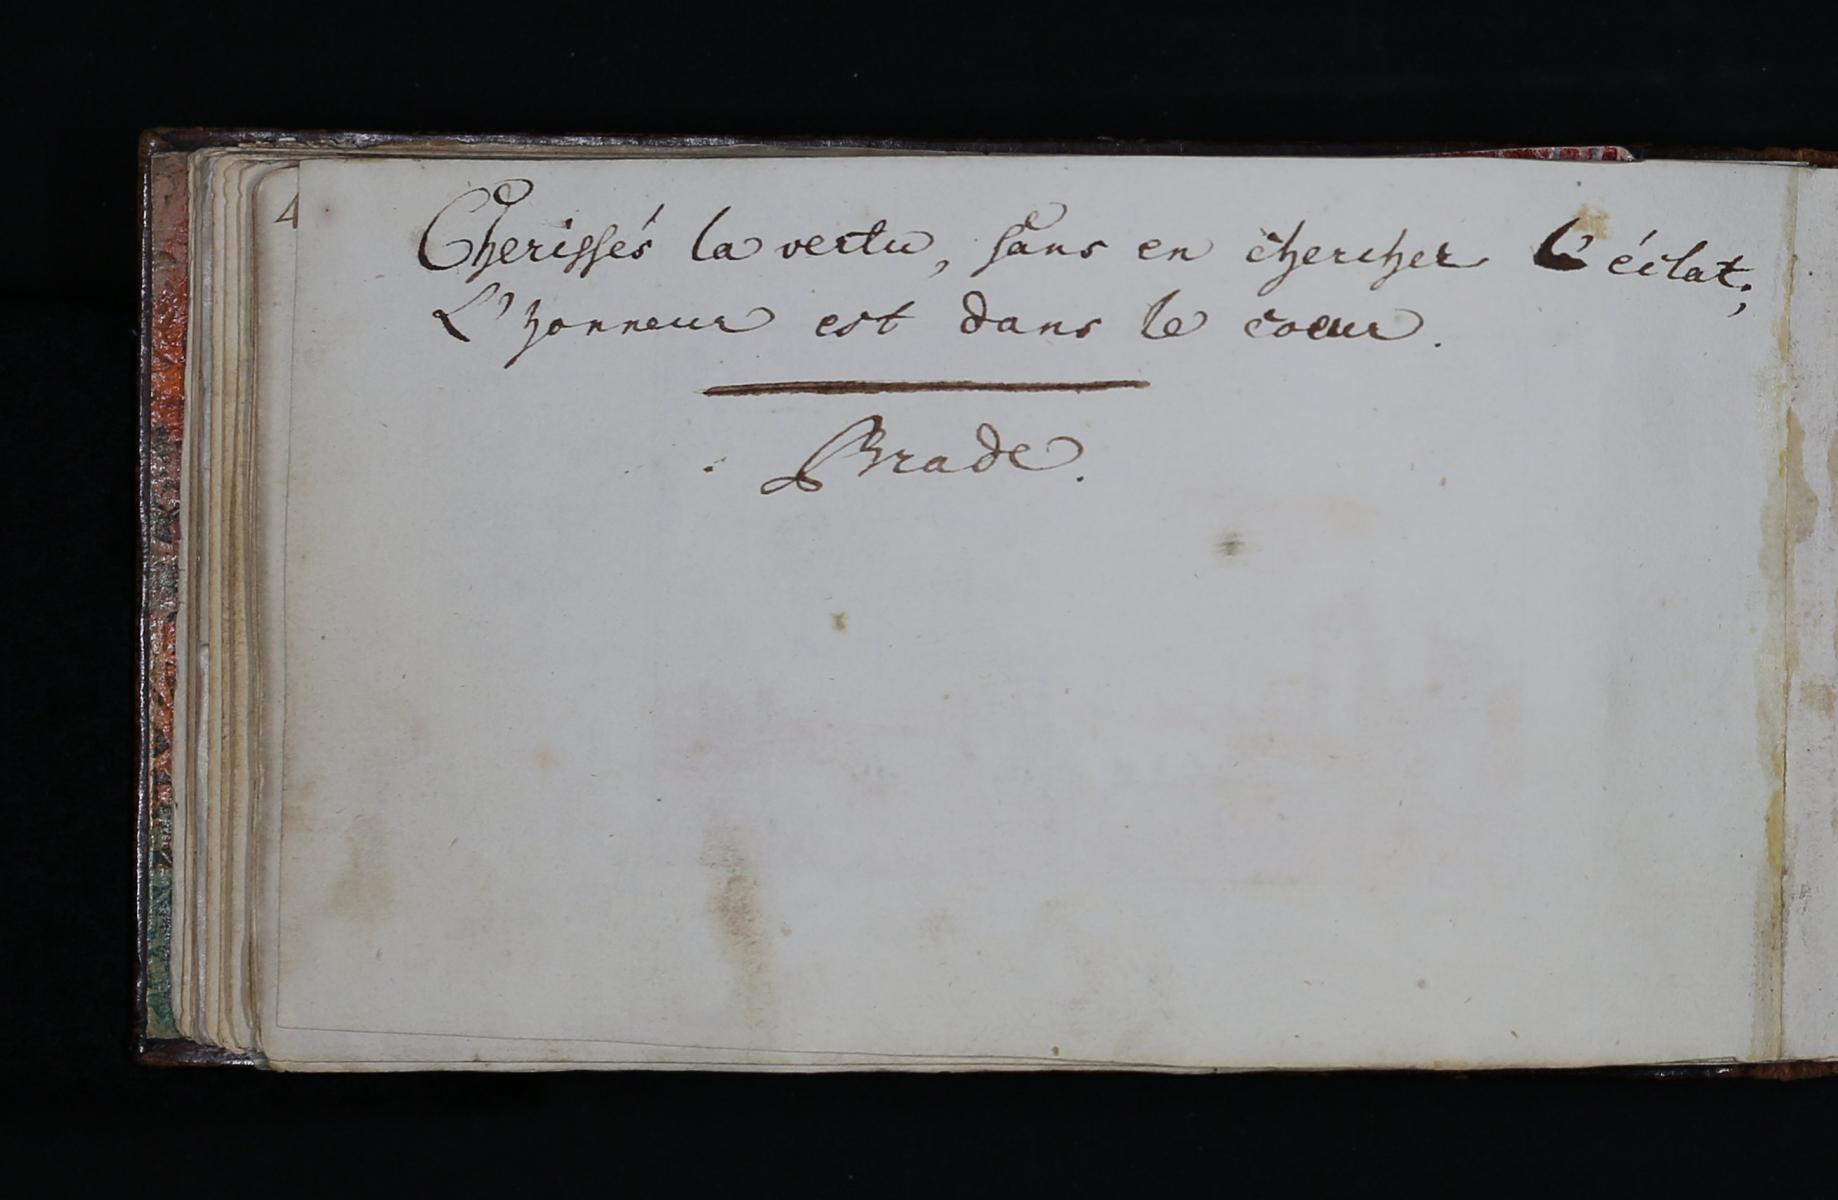 4
Cherissés la vertu, sans en chercher l'éclat;
L'honneur est dans le coeur.
Brade.